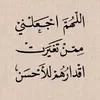 اللهُمَّ اجْعَلْنِي
مِمَّنْ تَغَيَّرَتْ
أَقْدَارُهُمْ لِلأَحْسَنْ